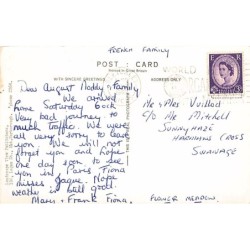 FRENCH FAMILY
POST CARD
WITH SINCERE GREETINGS
ADDRESS ONLY
Dear August Maddy & Family,
We arrived
home Saturday 6 o/c
Very bad journey to
much traffic. We were
all very sorry to leave
you. We will not
forget you and hope
one day soon to see
you in Paris. Fiona
misses Jaque.
weather is still good.
Mary. Frank. Fiona.
WORLD
Mr & Mrs Vuillod
c/o Mr Mitchell
SUNNYHAZE
HARMANS CROSS
SWANAGE
FLOWER MEADOW